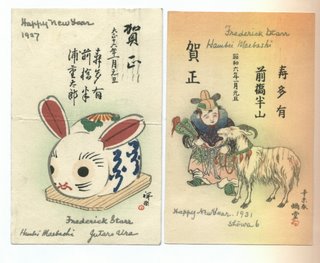 Happy New Year
1927
賀正
大正十六年一月元旦
寿多有
前橋半
浦重太郎
Frederick Starr
Hambei Maebashi Jutaro Ura
Frederick Starr
Hambei Maebashi
賀正
昭和六年一月元旦
寿多有
前橋半山
Happy New Year 1931
Showa 6